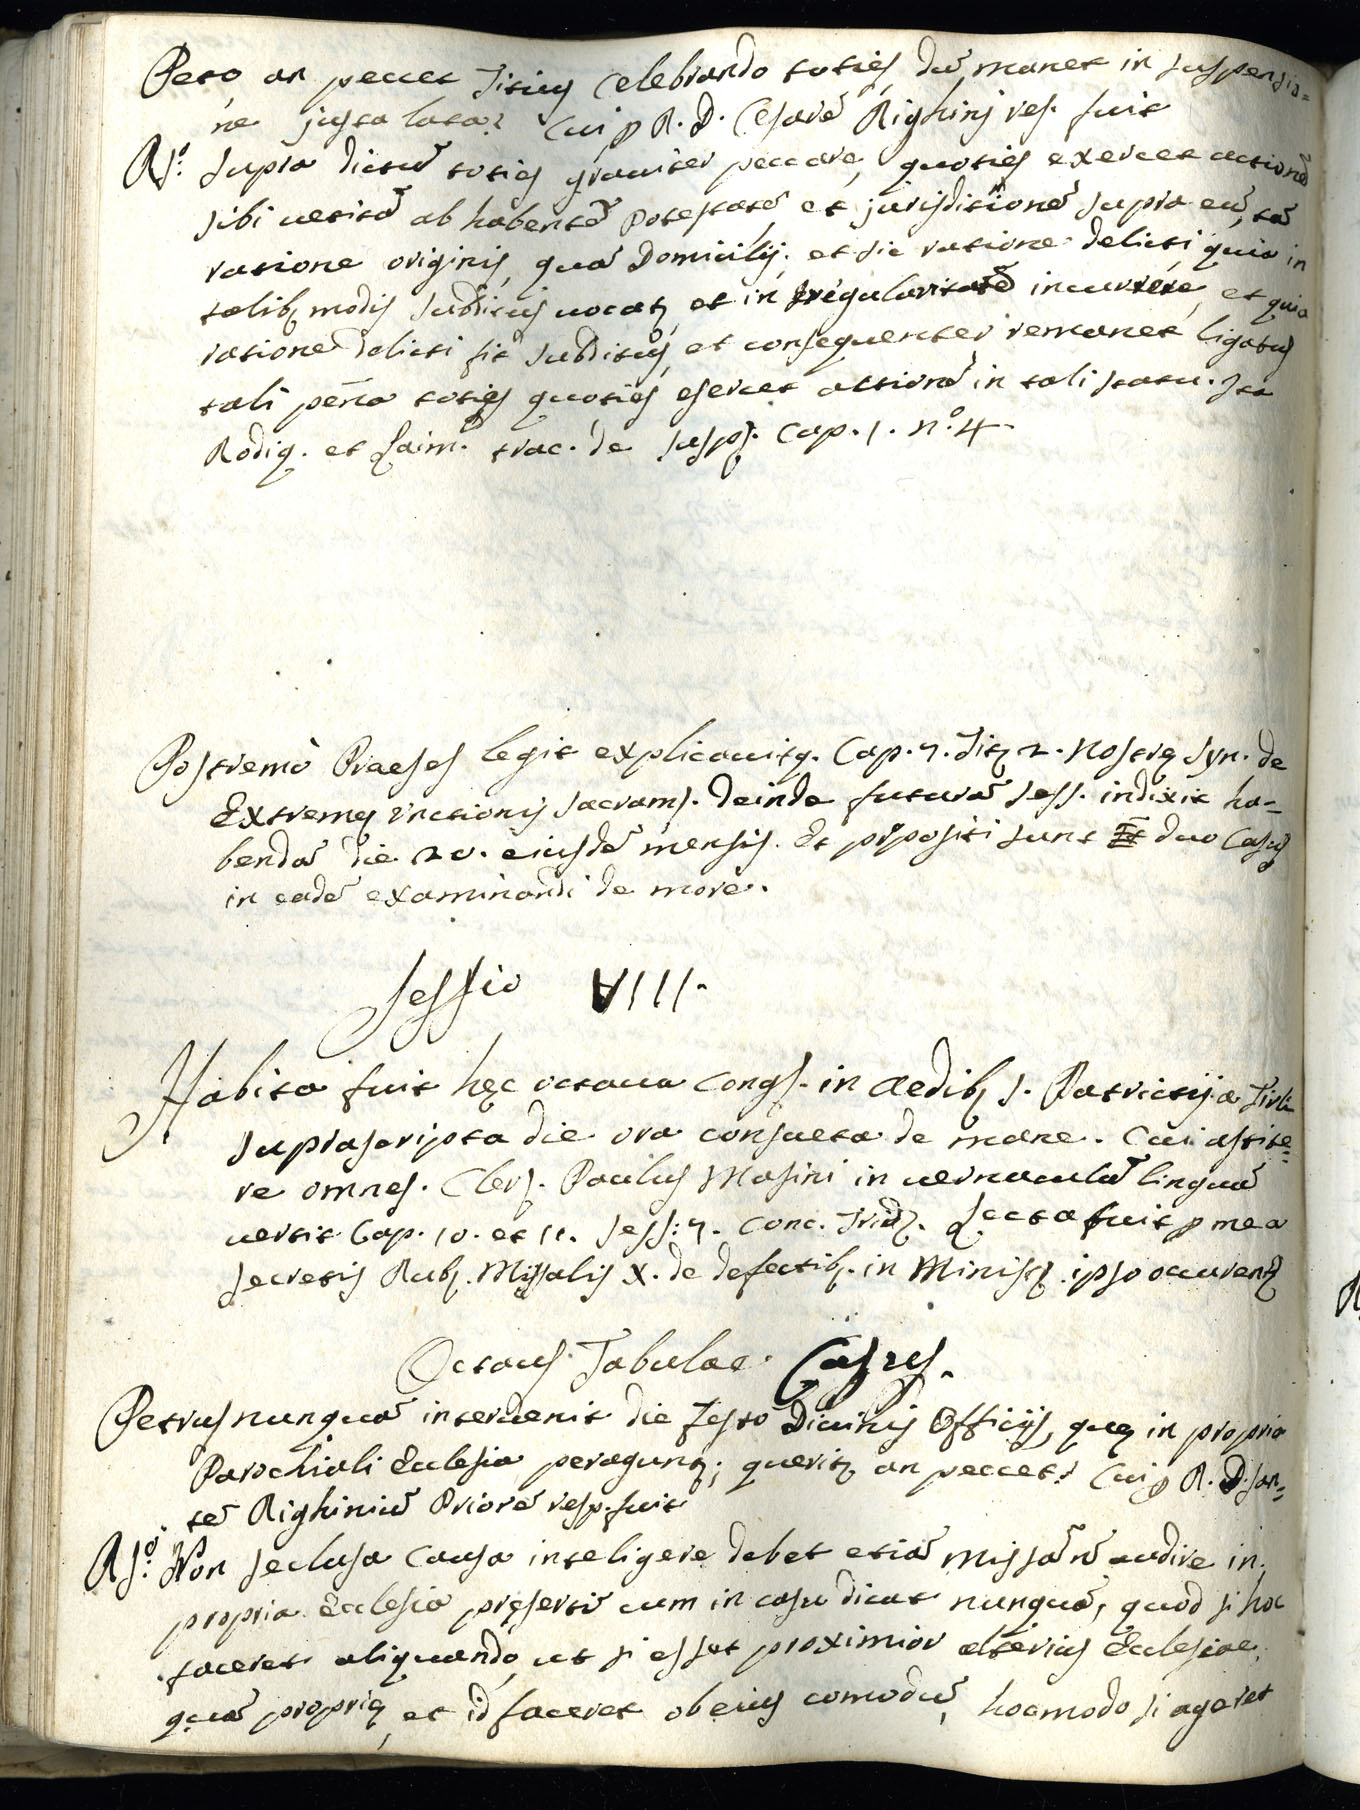 Peto an peccet Titius celebrando toties, dũ manet in suspensio=
ne justa lata? Cui p R. D. Cesarẽ Righinj res. fuit
Rs.º supra dictũ toties graviter peccare, quoties exercet actionẽ
sibi uetitã ab habentẽ potestatẽ, et jurisditionẽ supra eũ, tã
ratione originis, quã Domicilij. et sic ratione delicti quia in
talib; modis subditus uocat; et in irregularitatẽ incurrere, et quia
ratione delicti fit subditus, et consequenter remanet ligatus
tali pena toties quoties eserces actionẽ in tali statu. Ita
Rodiq. et Laim. trac. de susps. Cap. 1. nº. 4.
Postremò Praeses legit explicauitq. Cap. 7. Tit; 2. Nostrę Syn. de
Extremę Vnctionis sacrams. deinde futurã sess. indixit ha=
bendã die 20. eiusdẽ mensis. Et pr̃positi sunt duo Casus
in eadẽ examinandi de more.
Sessio VIII.
Habita fuit hęc octaua congs. in Aedib; S. Patrictij a Tirli
suprascripta die ora consueta de mane. Cui astite=
re omnes. Clers. Paulus Masini in uernaculã linguã
uertit Cap. 10. et 11. Sess: 7. Conc. Trid;. Lecta fuit p me a
secretis Rub;. Missalis X. de defectib;. in Minist; ipso occurent;
Octaus Tabulae Casus.
Petrus nunquã interuenit die festo Diuinis Officijs, quę in propria
Parochiali Ecclesia peragunt;, querit; an peccet? Cui p R. D. San=
tẽ Righiniũ Priorẽ resp. fuit
Rs.º Non seclusa causa inteligere debet etiã missã nõ audire in
propria Ecclesia pręsertĩ cum in casu dicat nunquã, quod si hoc
faceret aliquando, ut si esset proximior alterius Ecclesiae,
quã proprię, et id faceret ob eius comodũ, hocmodo si ageret